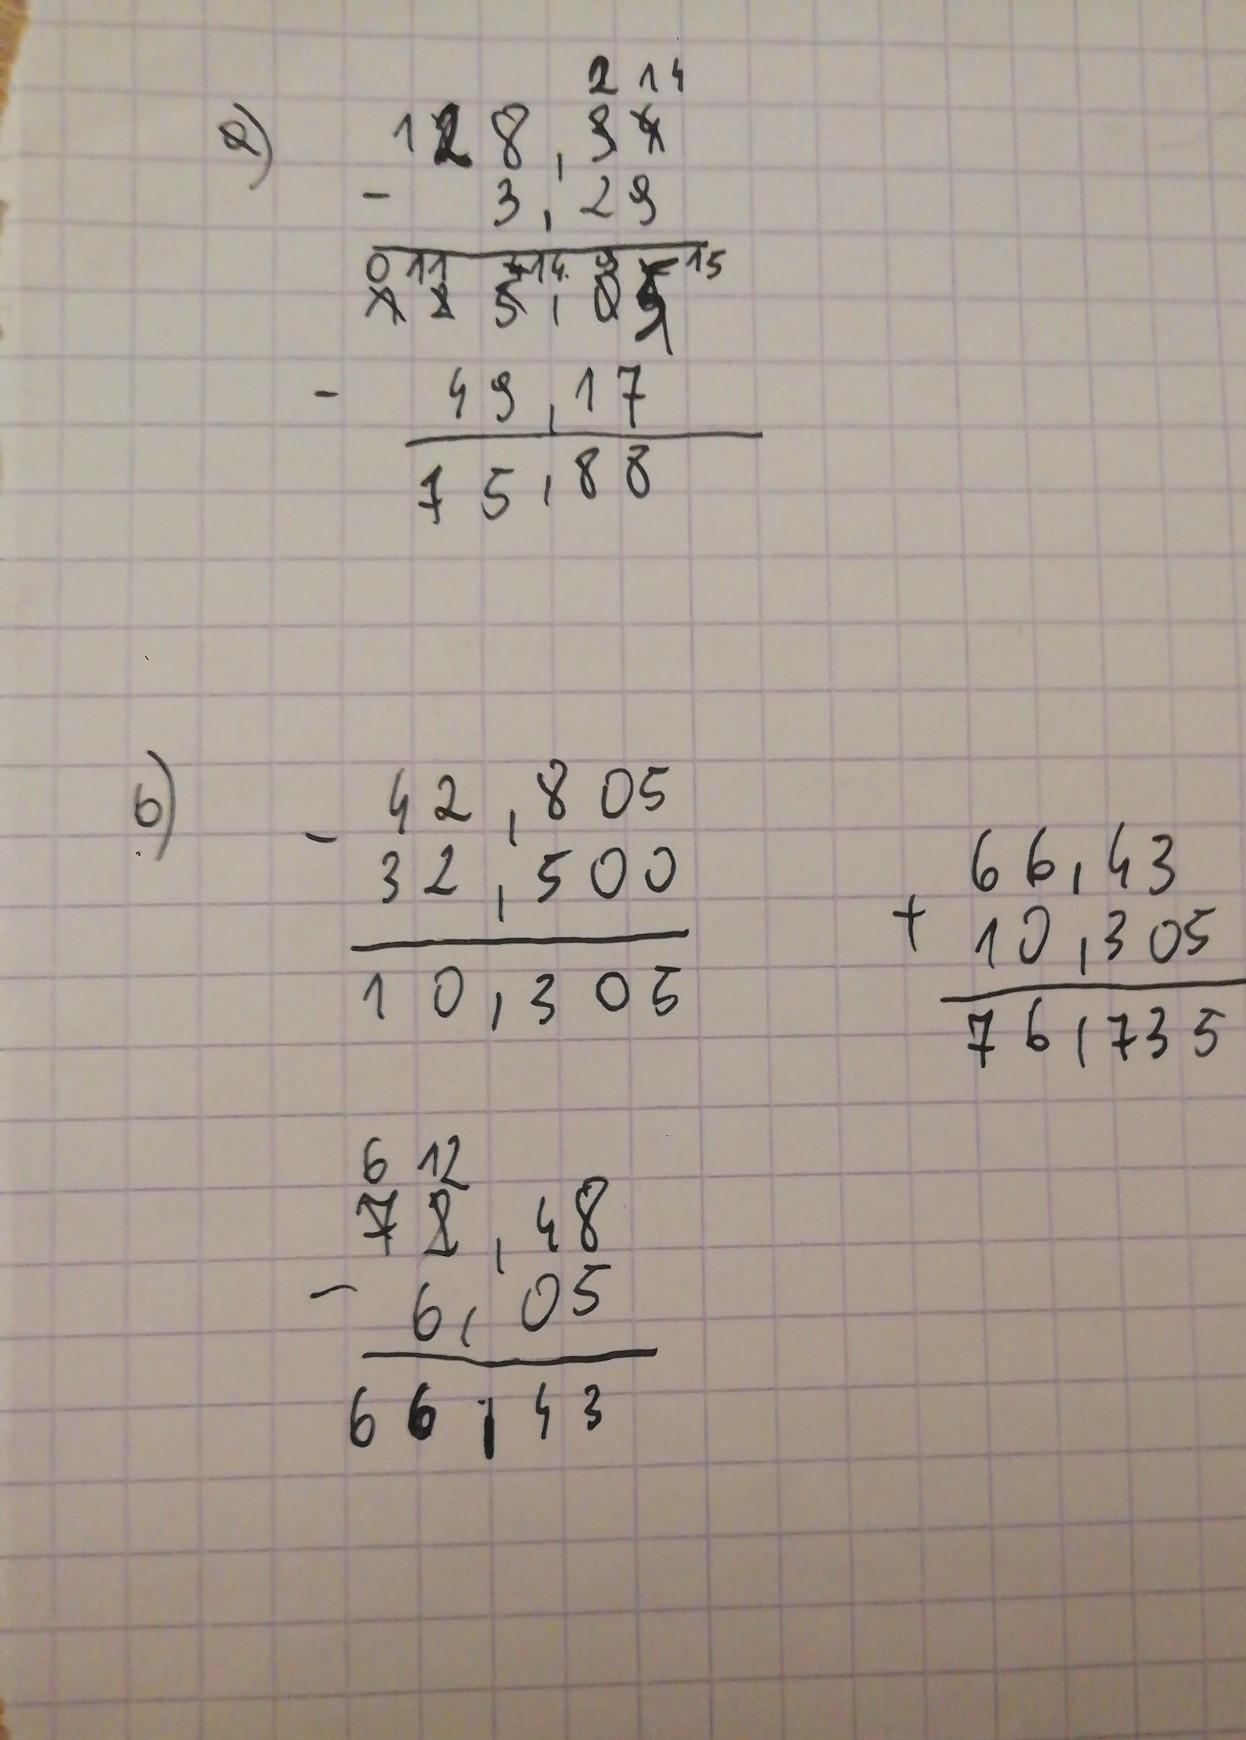 2 14
a) 128,34
- 3,29
0 11 4 14 9 15
125,05
- 49,17
75,88
b) 42,805
- 32,500
10,305
66,43
+ 10,305
76,735
6 12
72,48
- 6,05
66,43